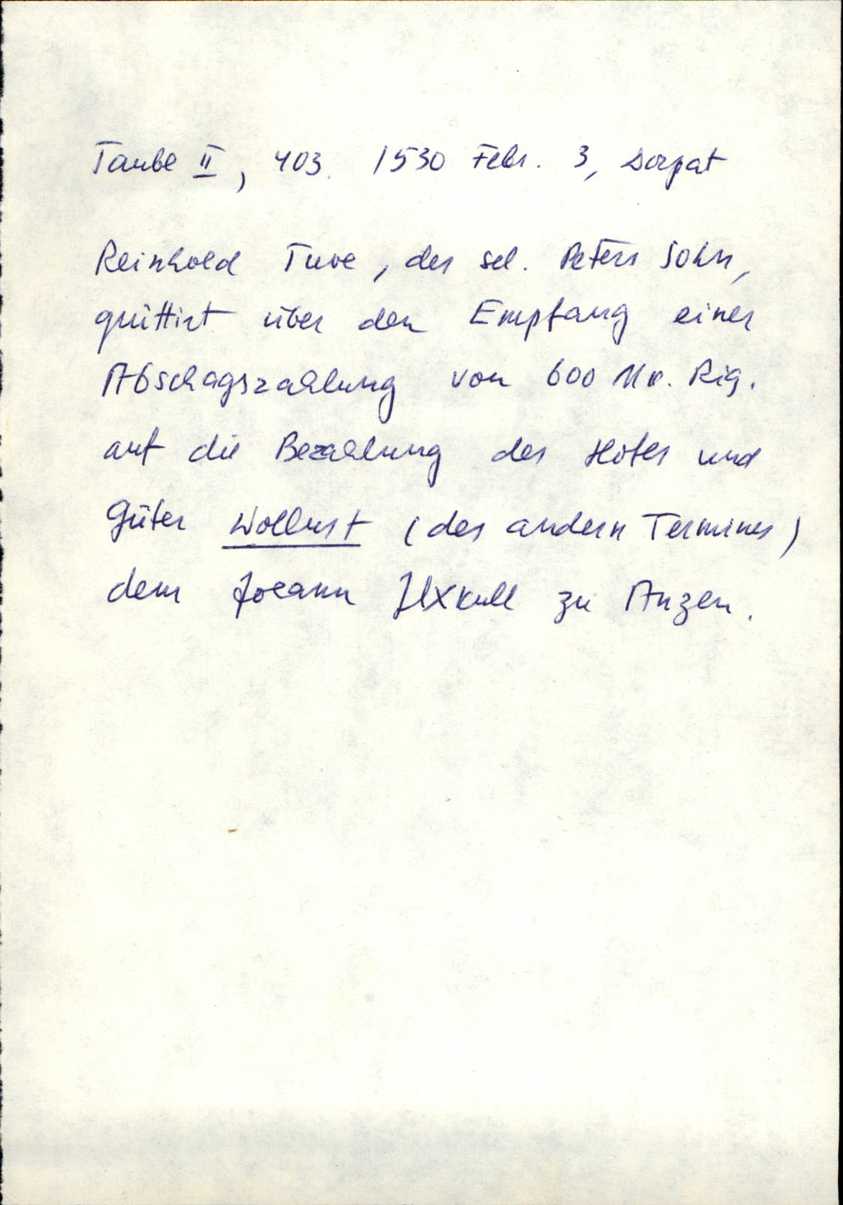 Taube II, 403. 1530 Febr. 3, Dorpat
Reinhold Tuve, des sel. Peters Sohn,
quittirt über den Empfang einer
Abschagszahlung von 600 Mk. Rig.
auf die Bezahlung des Hofes und
Güter Wollust (des andern Termines)
dem Johann Uxkull zu Anzen.